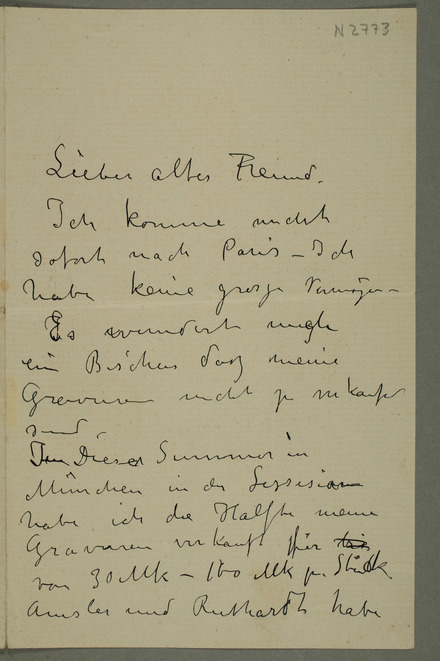 N 2773
Lieber alter Freund.
Ich komme nicht
sofort nach Paris – Ich
habe keine große Vermögen –
Es wundert mich
ein Bischen daß meine
Gravuren nicht verkauft
sind.
Dieser Summer in
München in der Sezession
habe ich die Hälfte meine
Gravuren verkauft für
von 30 Mk – 100 Mk pr. Stück.
Amsler und Ruthardt habe